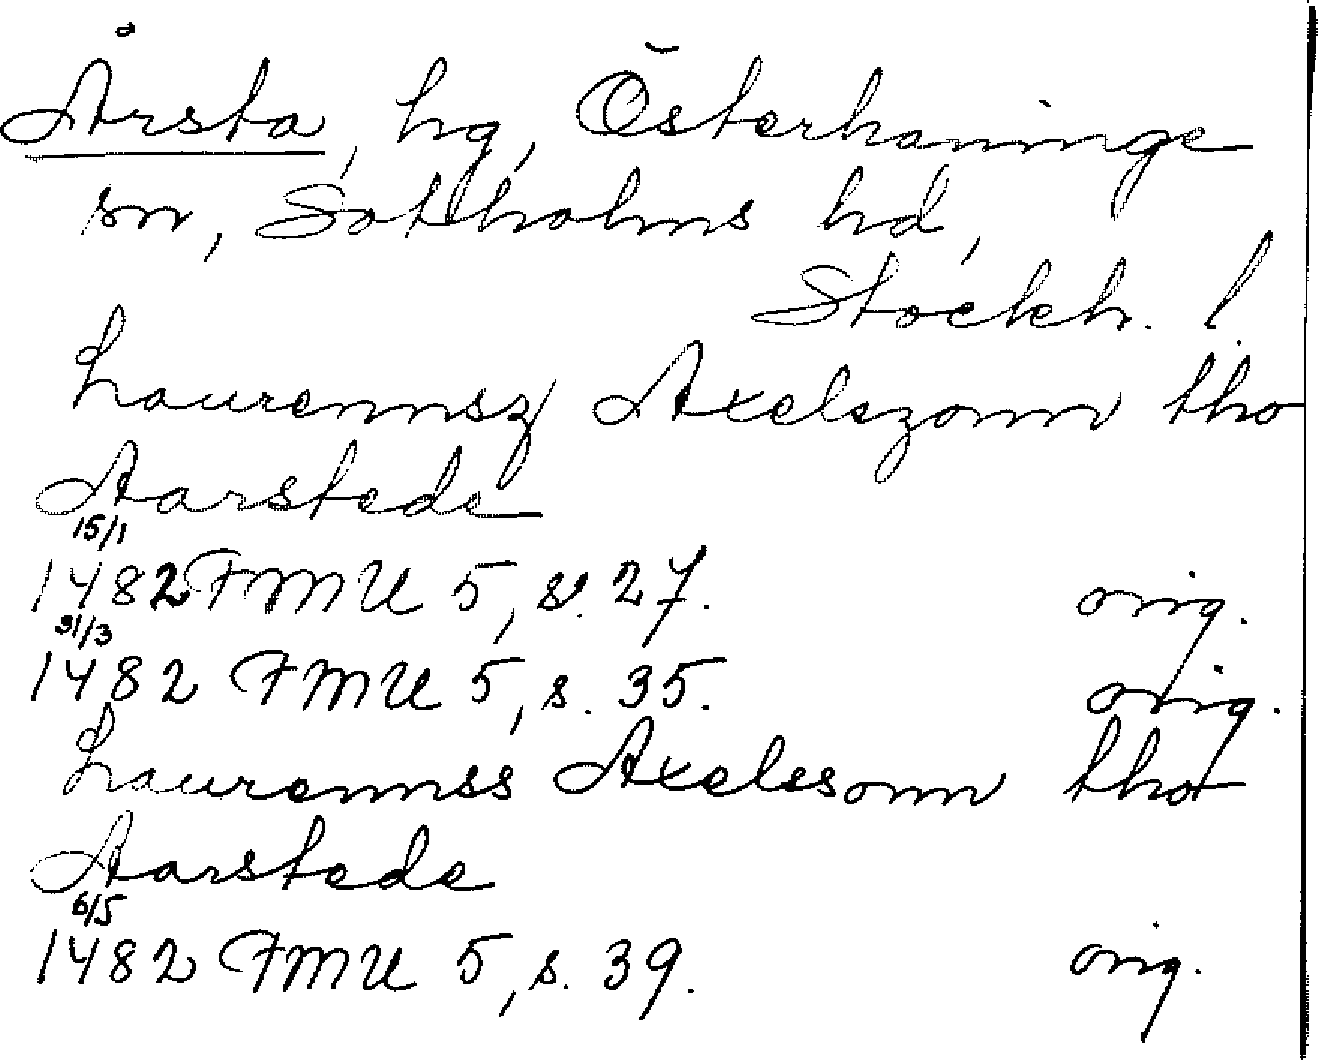 Årsta, hg, Österhaninge
sn, Sotholms hd,
Stockh. l.
Laurennsz Axelszonn tho
Aarstede
15/1
1482 FMU 5, s. 27. orig.
31/3
1482 FMU 5, s. 35. orig.
Laurennss Axelssonn thot
Aarstede
6/5
1482 FMU 5, s. 39. orig.